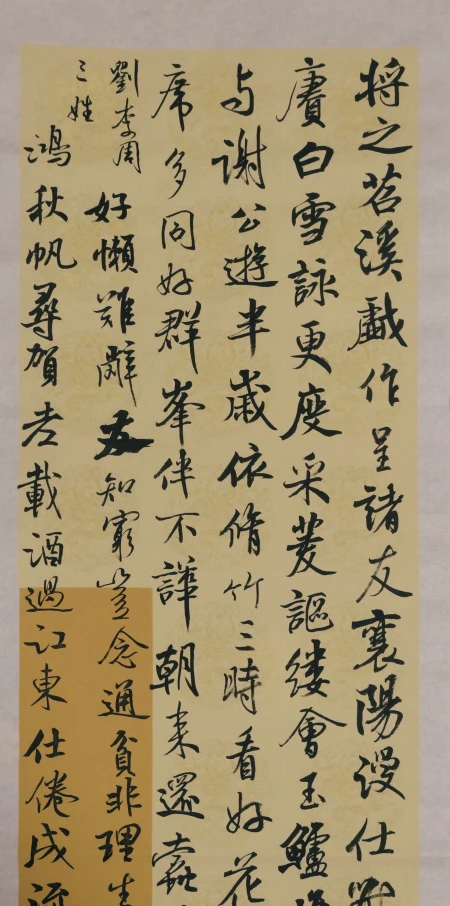 将之苕溪戯作呈諸友襄陽漫仕黻
賡白雪詠更度采菱謳縷會玉鱸
与謝公遊半歲依脩竹三時看好花
席多同好群峯伴不譁朝来還蠹
劉李周
三姓
好懶難辭友知窮豈念通貧非理生
鴻秋帆尋賀老載酒過江東仕倦成流